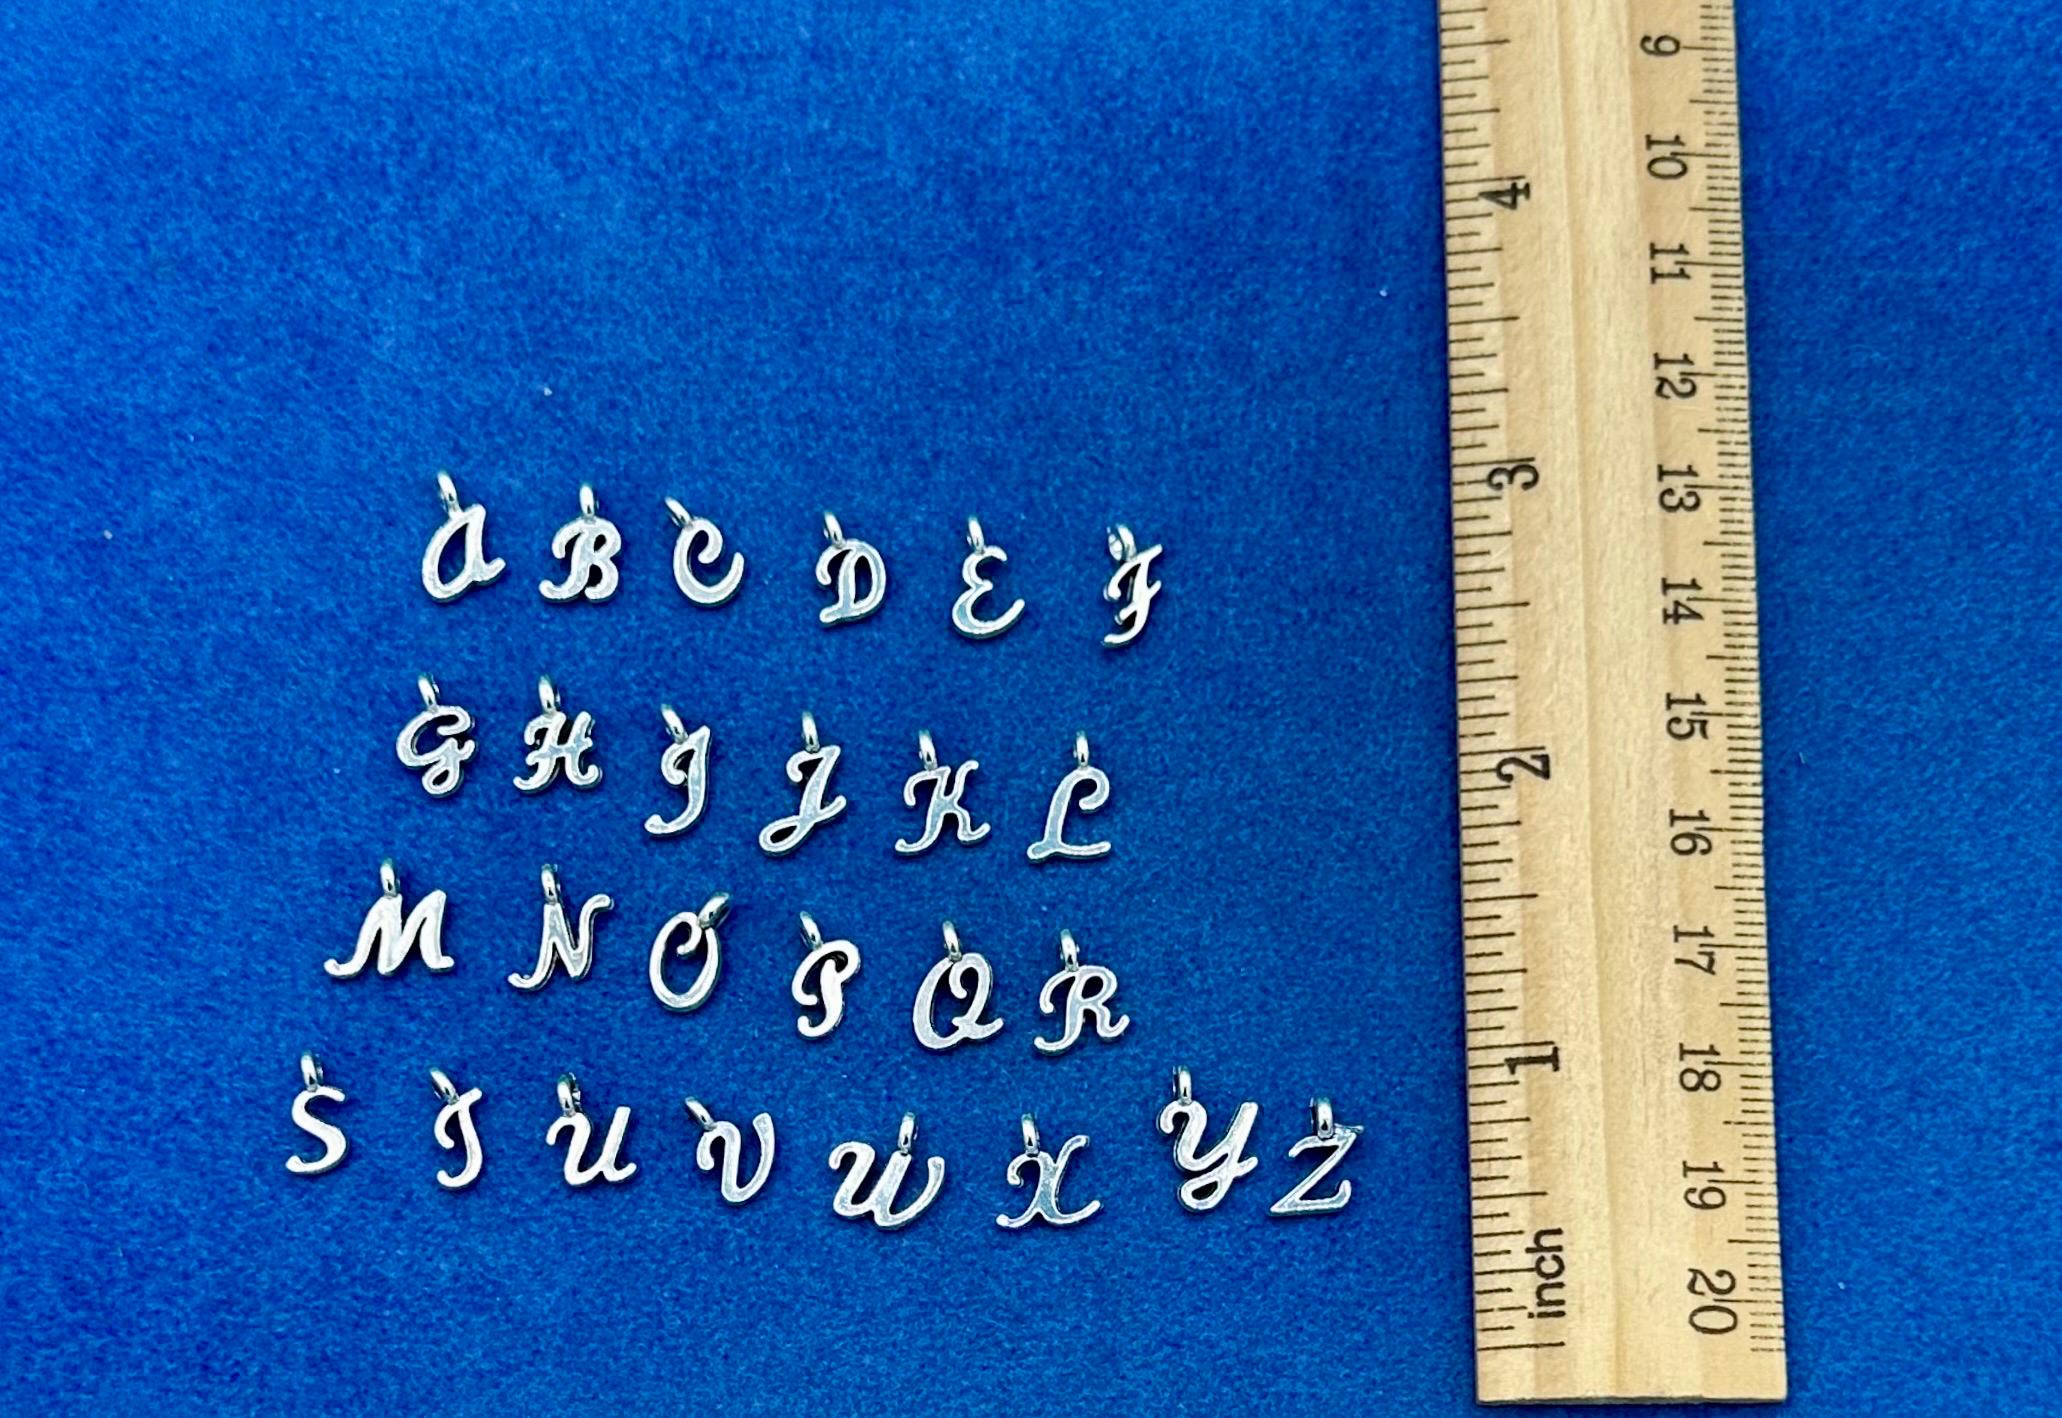 A B C D E F
G H I J K L
M N O P Q R
S T U V W X Y Z
4
3
2
1
inch
9
10
11
12
13
14
15
16
17
18
19
20